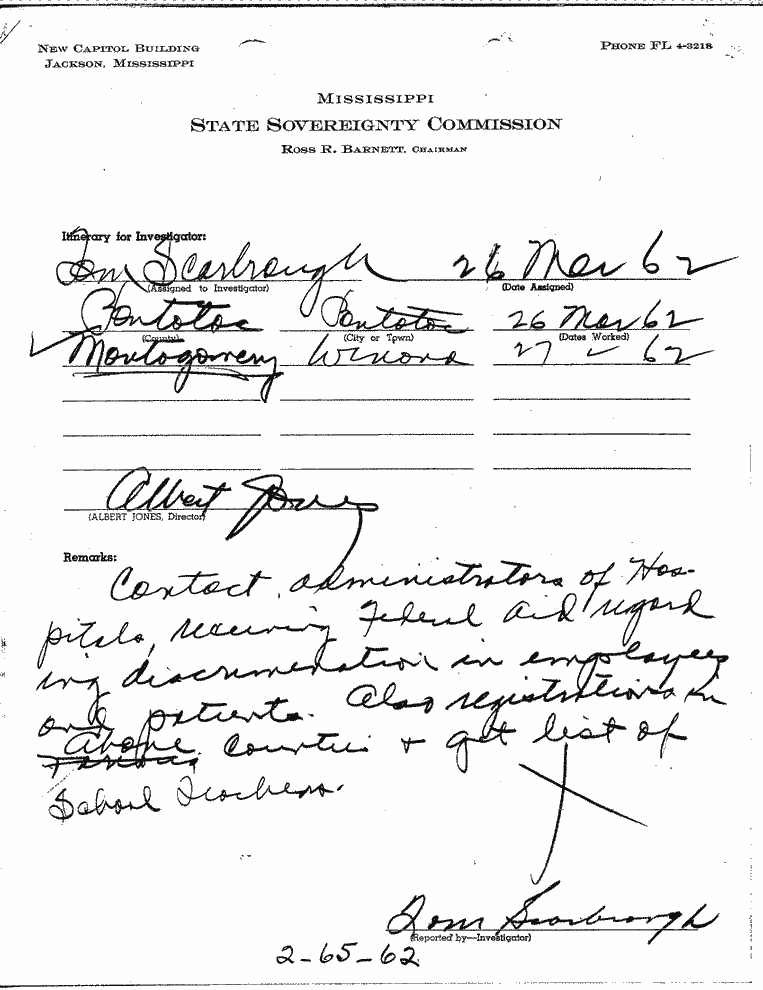 NEW CAPITOL BUILDING
JACKSON, MISSISSIPPI
PHONE FL 4-3218
MISSISSIPPI
STATE SOVEREIGNTY COMMISSION
ROSS R. BARNETT, CHAIRMAN
Itinerary for Investigator:
Tom Scarbrough 26 Mar 62
(Assigned to Investigator) (Date Assigned)
Pontotoc Pontotoc 26 Mar 62
(County) (City or Town) (Dates Worked)
Montgomery Winona 27 " 62
Albert Jones
(ALBERT JONES, Director)
Remarks:
Contact administrators of Hos-
pitals, receiving Federal aid regard
ing discrimination in employees
and patients. Also registrations in
Above
Counties + get list of
School Teachers.
Tom Scarbrough
(Reported by—Investigator)
2-65-62